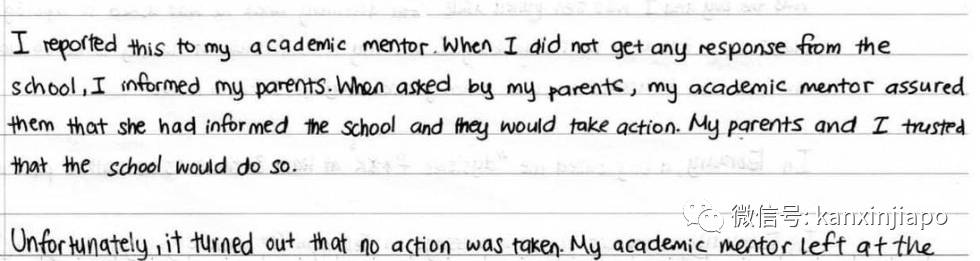 I reported this to my academic mentor. When I did not get any response from the
school, I informed my parents. When asked by my parents, my academic mentor assured
them that she had informed the school and they would take action. My parents and I trusted
that the school would do so.
微信号: kanxinjiapo
Unfortunately, it turned out that no action was taken. My academic mentor left at the